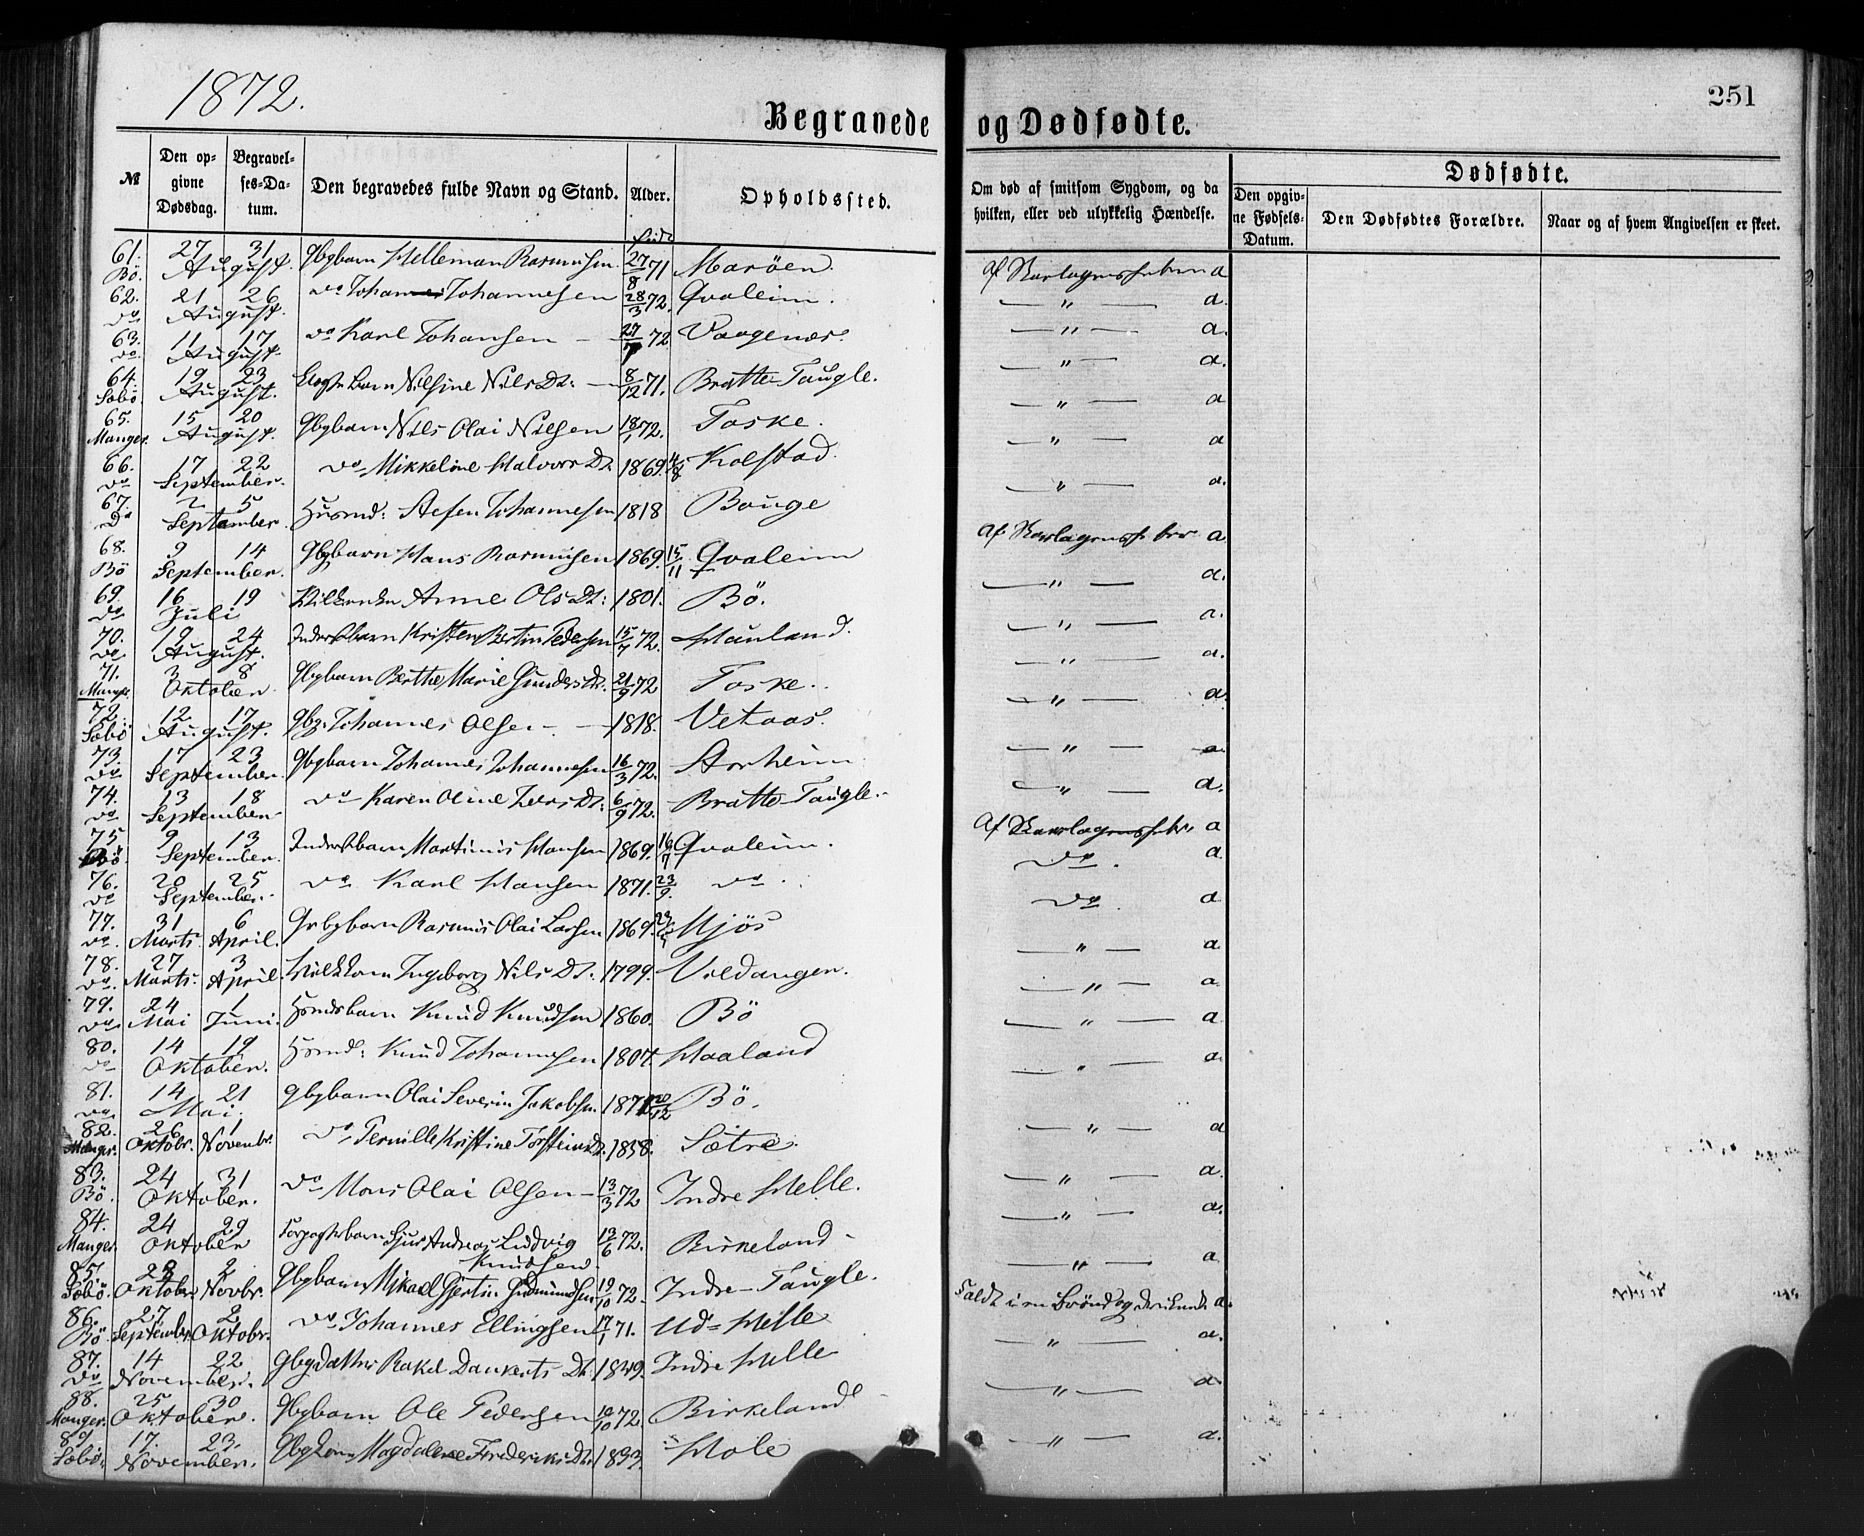 1872.
251
Begravede og Dødfødte.
№
Den opgivne Dødsdag.
Begravelses-Datum.
Den begravedes fulde Navn og Stand.
Alder.
Opholdssted.
Om død af smitsom Sygdom, og da hvilken, eller ved ulykkelig Hændelse.
Dødfødte.
Den opgivne Fødsels-Datum.
Den Dødfødtes Forældre.
Naar og af hvem Angivelsen er skeet.
61. Bö. 27 31 August. Gbgbarn Helleman Rasmussen 27/8 71 Marøen. af Skarlagensfeber a
62. do 21 26 August. do Johannesen 28/3 72. Qvaleim. — " — a.
63. do. 11 17 August. do Karl Johansen — 27/7 72 Vaagenæs. — " — a.
64. Sæbö. 19 23 August. Barn Nilsine Nils Dt: — 8/12 71. Bratte-Taugle. — " — a.
65. Manger. 15 20 August. Gbgbarn Nils Olai Nilsen 18/1 72. Toske. — " — a
66. do 17 22 September. do Mikkeline Halvors Dt. 1869. Kolstad. — " — a
67. Do 2 5 September. Husmd: Steffen Johannesen 1818 Bouge — " — a.
68. Bö 9 14 September. Gbgbarn Hans Rasmussen 1869. 15/11 Qvaleim Af Skarlagensfeber a
69. do 16 19 Juli Anne Ols Dt: 1801. Bö. — " — a.
70. do 19 24 August. Inderstbarn Kristen Bertin Pedersen 15/7 72. Hauland. — " — a.
71. Manger. 3 8 Oktober. Gbgbarn Berthe Marie Gunders Dt. 21/9 72 Toske. — " — a.
72. Sæbö 12 17 August. Gbg: Johannes Olsen — 1818. Vetaas. — " — a.
73. do 17 23 September. Gbgbarn Johannes Johannesen 16/3 72. Arrheim — " — a.
74. do 13 18 September. do Karen Oline Dt: 6/9 72. Bratte-Taugle. — " — a.
75 Bö. 9 13 September. Inderstbarn Martinus Hansen 1869. 16/7 Qvaleim. Af Skarlagensfeber a
76. do 20 25 September. do Karl Hansen 1871. 23/9. do. do. a.
77. do. 31 Marts. 6 April. Gbgbarn Rasmus Olai Larsen 1869. Mjös do. a.
78. do. 27 Marts. 3 April. Ingeborg Nils Dt. 1799. Voldangen. — " — a
79. do 24 Mai 1 Juni. Hsmdsbarn Knud Knudsen 1860. Bö — " — a.
80. do 14 19 Oktober. Hsmd: Knud Johannesen 1807. Haaland — " — a
81. do. 14 21 Mai. Gbgbarn Olai Severin Jakobsen 1871 20/12 Bö. — " — a.
82. Manger. 26 Oktobr. 1 Novembr. do. Pernille Kristine Torsteins Dt. 1858. Sætre. — " — a
83. Bö. 24 31 Oktober. do Mons Olai Olsen — 13/3 72 Indre Helle. — " — a.
84. Manger. 24 29 Oktober Sjur Andreas Ludvig Knudsen. 13/6 72. Birkeland — " — a.
85. Sæbö. 28 Oktober 2 Novbr. Gbgbarn Mikael Gjertin Gudmundsen 19/10 72. Indre-Taugle. — " — a
86. Bö. 27 September 2 Oktobr. do Johannes Ellingsen 17/1 71. Ud-Helle Faldt i en Brönd og druknede a.
87. do 14 22 November. Gbgdatter Rakel Dankerts Dt. 1849. Indre Helle — " — a.
88. Manger. 25 30 Oktober. Gbgbarn Ole Pedersen 10/10 72. Birkeland — " — a
89. Sæbö. 17. 23. November. Magdalene Frederiks Dt. 1833. Hole — " — a.